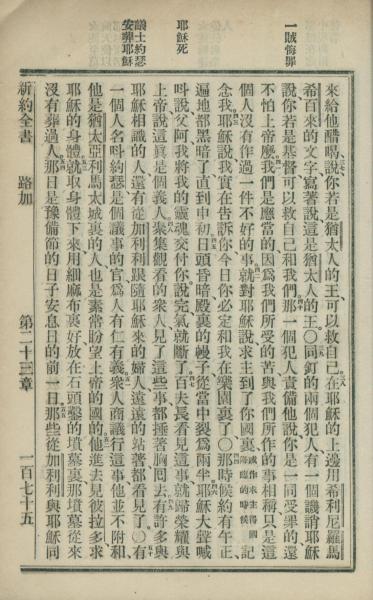 一賊悔罪
耶穌死
議士約瑟
安葬耶穌
來給他醋喝說你若是猶太人的王可以救自己在耶穌的上邊用希利尼羅馬
希百來的文字寫著說這是猶太人的王〇同釘的兩個犯人有一個譏誚耶穌
說你若是基督可以救自己和我們那一個犯人責備他說你是一同受罪的還
不怕上帝麽我們是應當的因爲我們所受的苦與我們所作的事相稱只是這
個人沒有作過一件不好的事就對耶穌說求主到了你國裏或作求主得國降臨的時候記
念我耶穌說我實在告訴你今日你必定和我在樂園裏了〇那時候約有午正
遍地都黑暗了直到申初日頭皆暗殿裏的幔子從當中裂爲兩半耶穌大聲喊
叫說父阿我將我的靈魂交付你說完氣就斷了百夫長看見這事就歸榮耀與
上帝說這眞是個義人衆集觀看的衆人見了這些事都捶著胸回去有許多與
耶穌相識的人還有從加利利跟隨耶穌來的婦人遠遠的站著都看見了〇有
一個人名叫約瑟是個議事的官爲人有仁有義衆人商議行這事他並不附和
他是猶太亞利馬太城裏的人也是素常盼望上帝的國的他進去見彼拉多求
耶穌的身體就取身體下來用細麻布裹好放在石頭鑿的墳墓裏那墳墓從來
沒有葬過人那日是豫備節的日子安息日的前一日那些從加利利與耶穌同
新約全書 路加 第二十三章 一百七十五